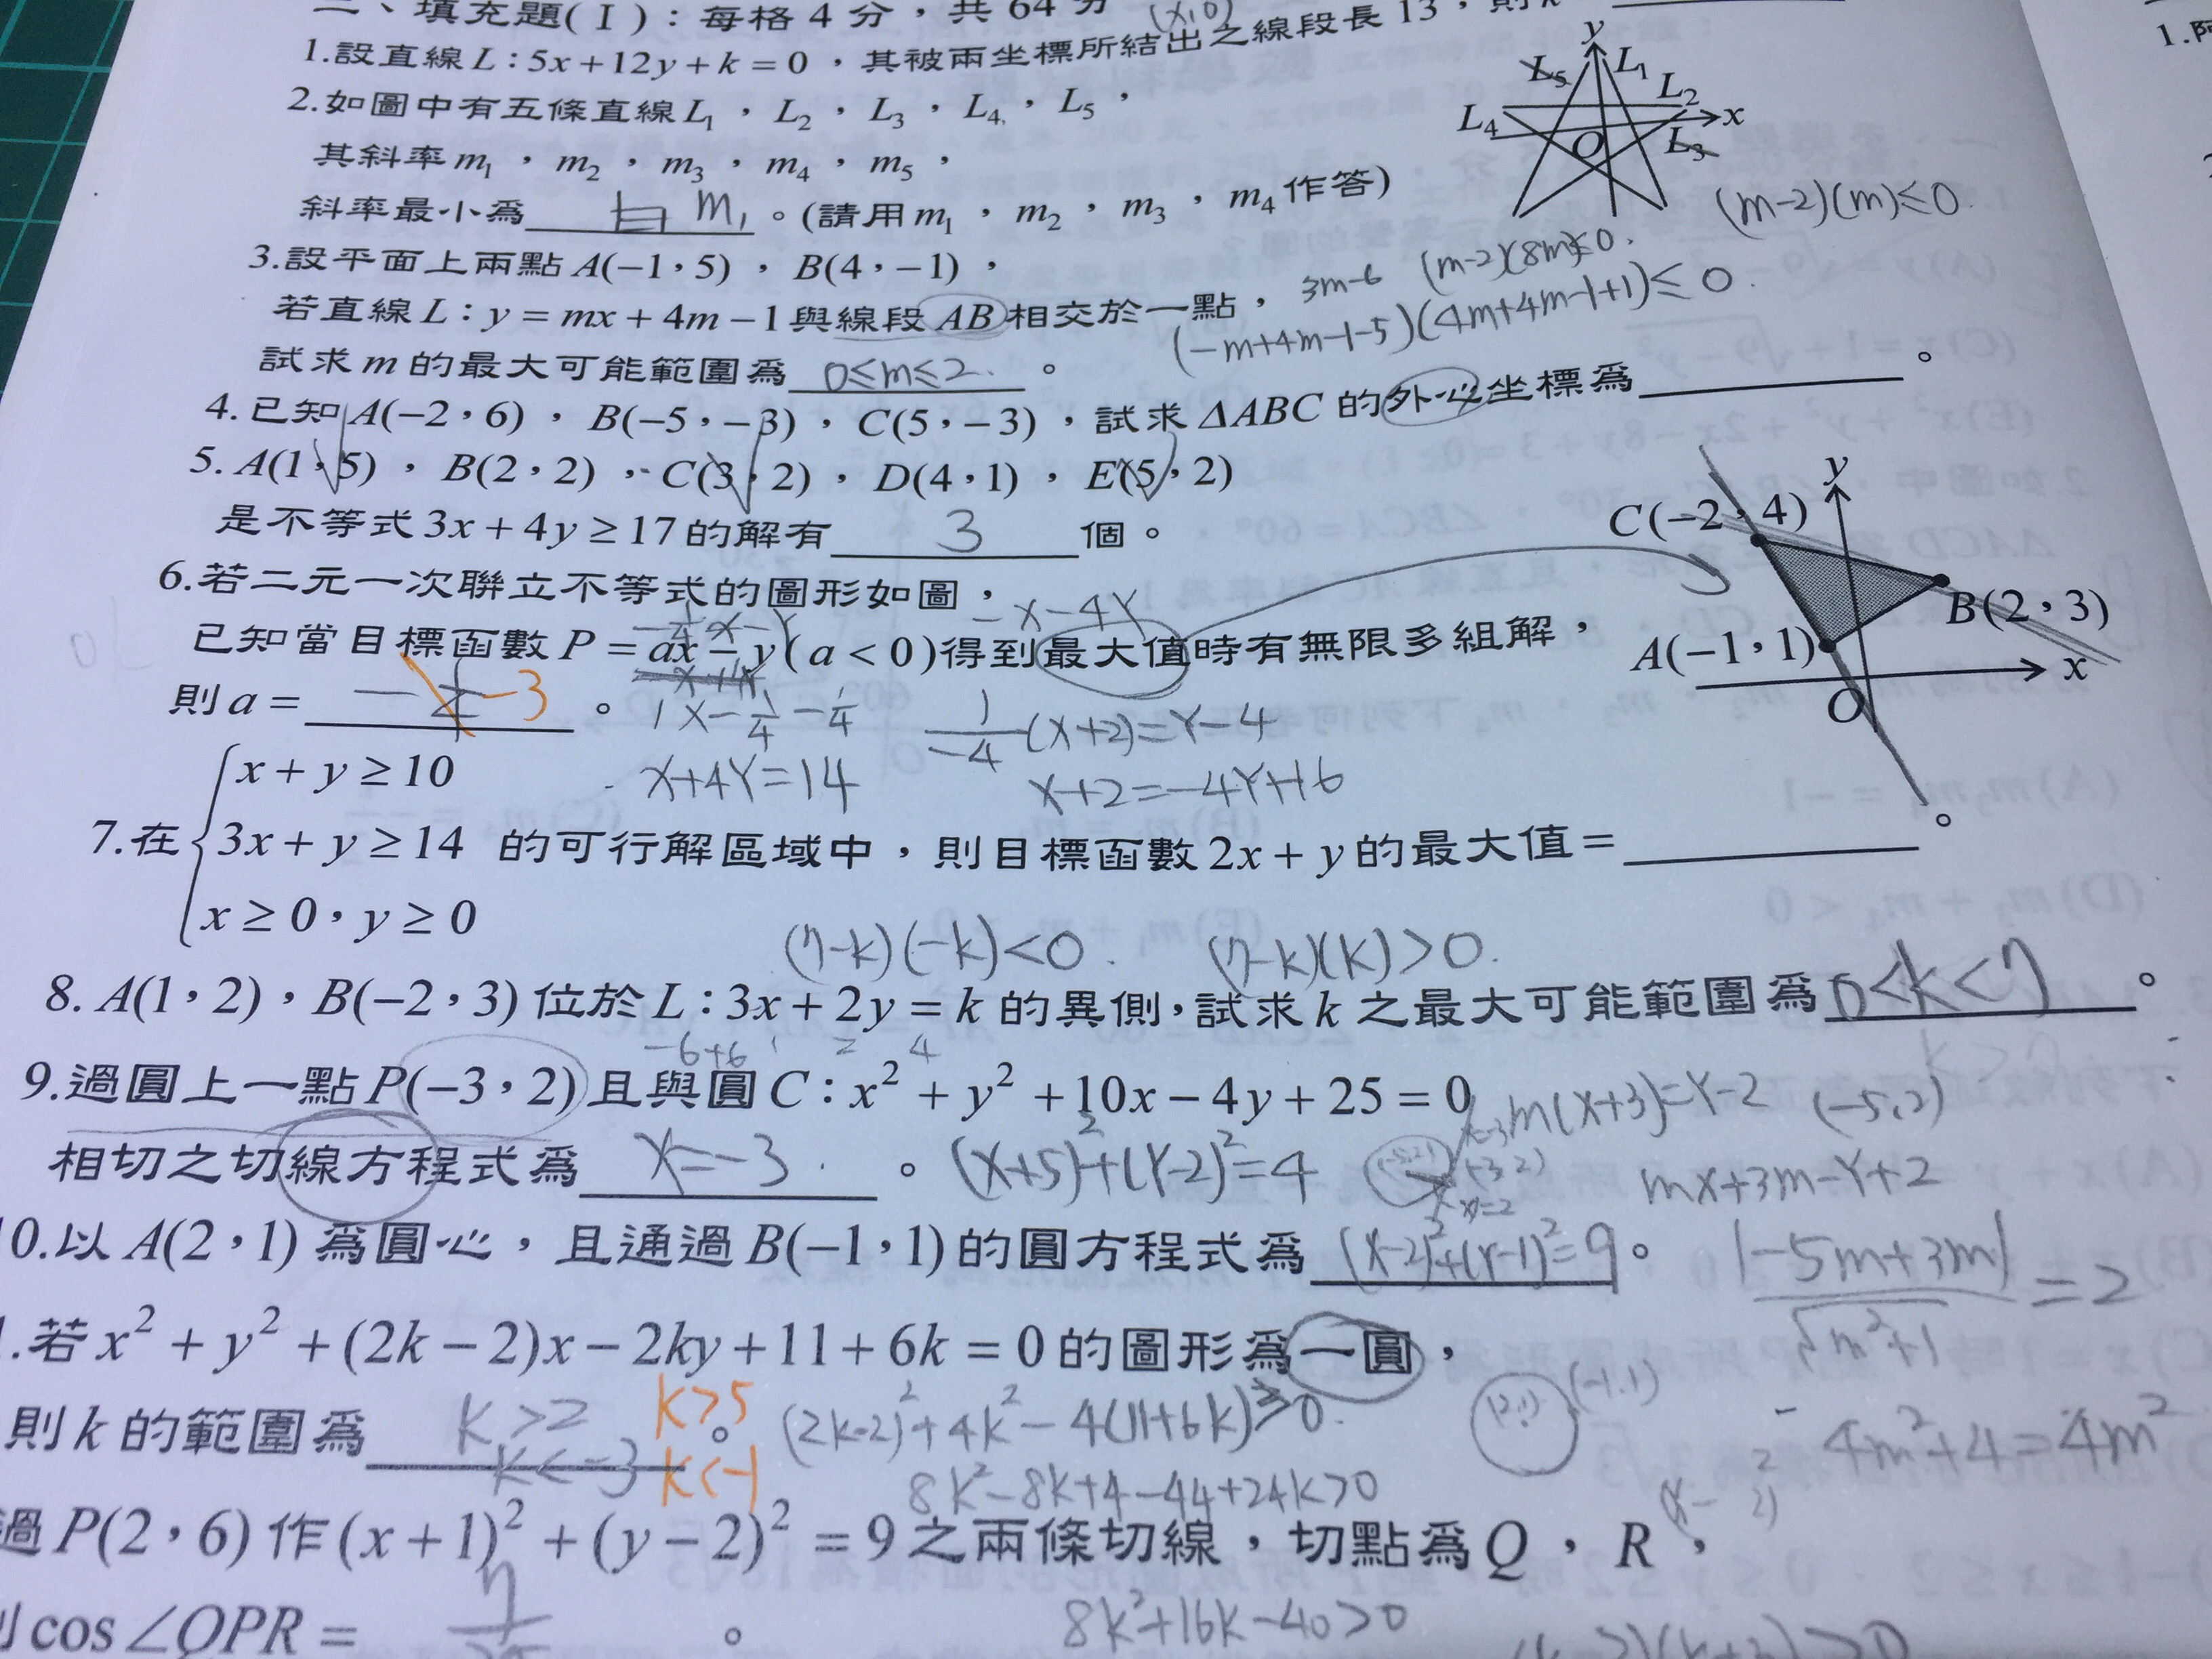 二、填充題(I)：每格4分，共64分
1.設直線L：5x+12y+k=0，其被兩坐標所結出之線段長13，則k
(x,0)
2.如圖中有五條直線L₁，L₂，L₃，L₄，L₅，
其斜率m₁，m₂，m₃，m₄，m₅，
斜率最小為 m₁ 。(請用m₁，m₂，m₃，m₄作答)
y
L₅ L₁
L₂
L₄ x
O L₃
(m-2)(m)≤0.
3.設平面上兩點A(−1，5)，B(4，−1)，
3m-6 (m-2)(8m)≤0.
若直線L：y=mx+4m−1與線段AB相交於一點，
(-m+4m-1-5)(4m+4m-1+1)≤0.
試求m的最大可能範圍為 0≤m≤2. 。
4.已知A(−2，6)，B(−5，−3)，C(5，−3)，試求ΔABC的外心坐標為 。
5.A(1，5)，B(2，2)，C(3，2)，D(4，1)，E(5，2)
是不等式3x+4y≥17的解有 3 個。
6.若二元一次聯立不等式的圖形如圖，
-x-4y
已知當目標函數P=ax−y(a<0)得到最大值時有無限多組解，
則a= -3 。
C(−2，4) y
B(2，3)
A(−1，1) x
O
1/-4(x+2)=y-4
x+4y=14 x+2=-4y+16
7.在 x+y≥10
3x+y≥14 的可行解區域中，則目標函數2x+y的最大值= 。
x≥0，y≥0
(7-k)(-k)<0. (7-k)(k)>0.
8.A(1，2)，B(−2，3)位於L：3x+2y=k的異側，試求k之最大可能範圍為 0<k<7 。
-6+6
9.過圓上一點P(−3，2)且與圓C：x²+y²+10x−4y+25=0
m(x+3)=y-2 (-5,2)
相切之切線方程式為 x=-3. 。 (x+5)²+(y-2)²=4
mx+3m-y+2
0.以A(2，1)為圓心，且通過B(−1，1)的圓方程式為 (x-2)²+(y-1)²=9 。
|-5m+3m|/√m²+1 =2
.若x²+y²+(2k−2)x−2ky+11+6k=0的圖形為一圓，
則k的範圍為 k>2 k<-3 k>5 k<-1 。
(2k-2)²+4k²-4(11+6k)>0.
(-1,1)
4m²+4=4m²
8k²-8k+4-44+24k>0
過P(2，6)作(x+1)²+(y−2)²=9之兩條切線，切點為Q，R，
cos∠QPR= 。
8k²+16k-40>0